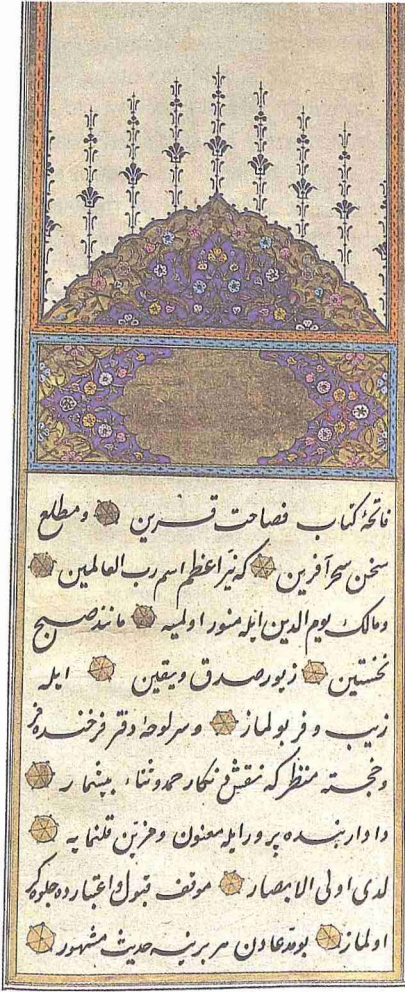 فاتحهٔ كتاب فصاحت قرين ومطلع
سخن سحرآفرين كه نيّر اعظم اسم رب العالمين
ومالك يوم الدين ايله منور اولميه مانند صبح
نخستين زيور صدق ويقين ايله
زيب وفر بولماز وسرلوحهٔ دفتر فرخنده فر
وخجسته منظر كه نقش ونكار حمد وثناء بيشمار
داوار بنده پرور ايله معنون ومزين قلنمايه
لدى اولى الابصار موقف قبول واعتبارده جلوه‌كر
اولماز بو مدعادن هر برينه حديث مشهور